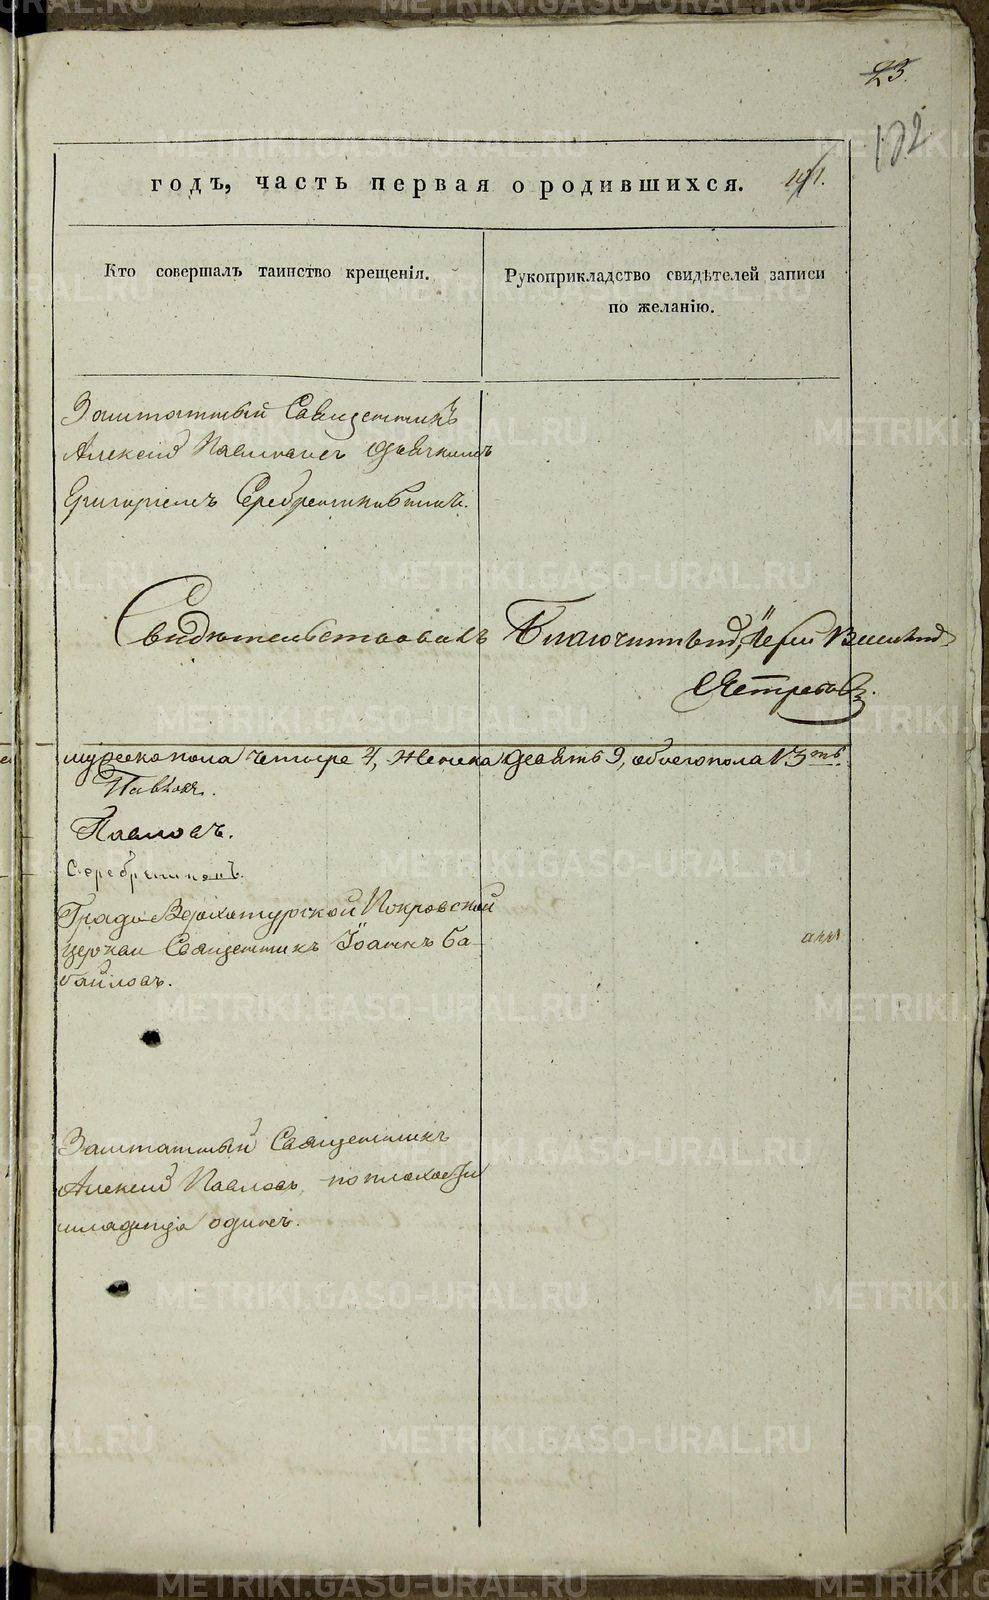 23.
102
годъ, часть первая о родившихся.
101.
Кто совершалъ таинство крещенія.
Рукоприкладство свидѣтелей записи
по желанію.
Заштатный Священникъ
Алексій Павловъ съ дьячкомъ
Григоріемъ Серебренниковымъ.
Свидѣтельствовалъ Благочинный, Іерей Василій
Ястребовъ.
мужеска пола четыре 4, женска девять 9, обоего пола 13ть.
Павловъ.
Серебрениковъ.
Градо-Верхотурской Покровской
церкви Священникъ Іоаннъ Ба-
байловъ.
Заштатный Священникъ
Алексій Павловъ, по плохости
младенца одинъ.
METRIKI.GASO-URAL.RU